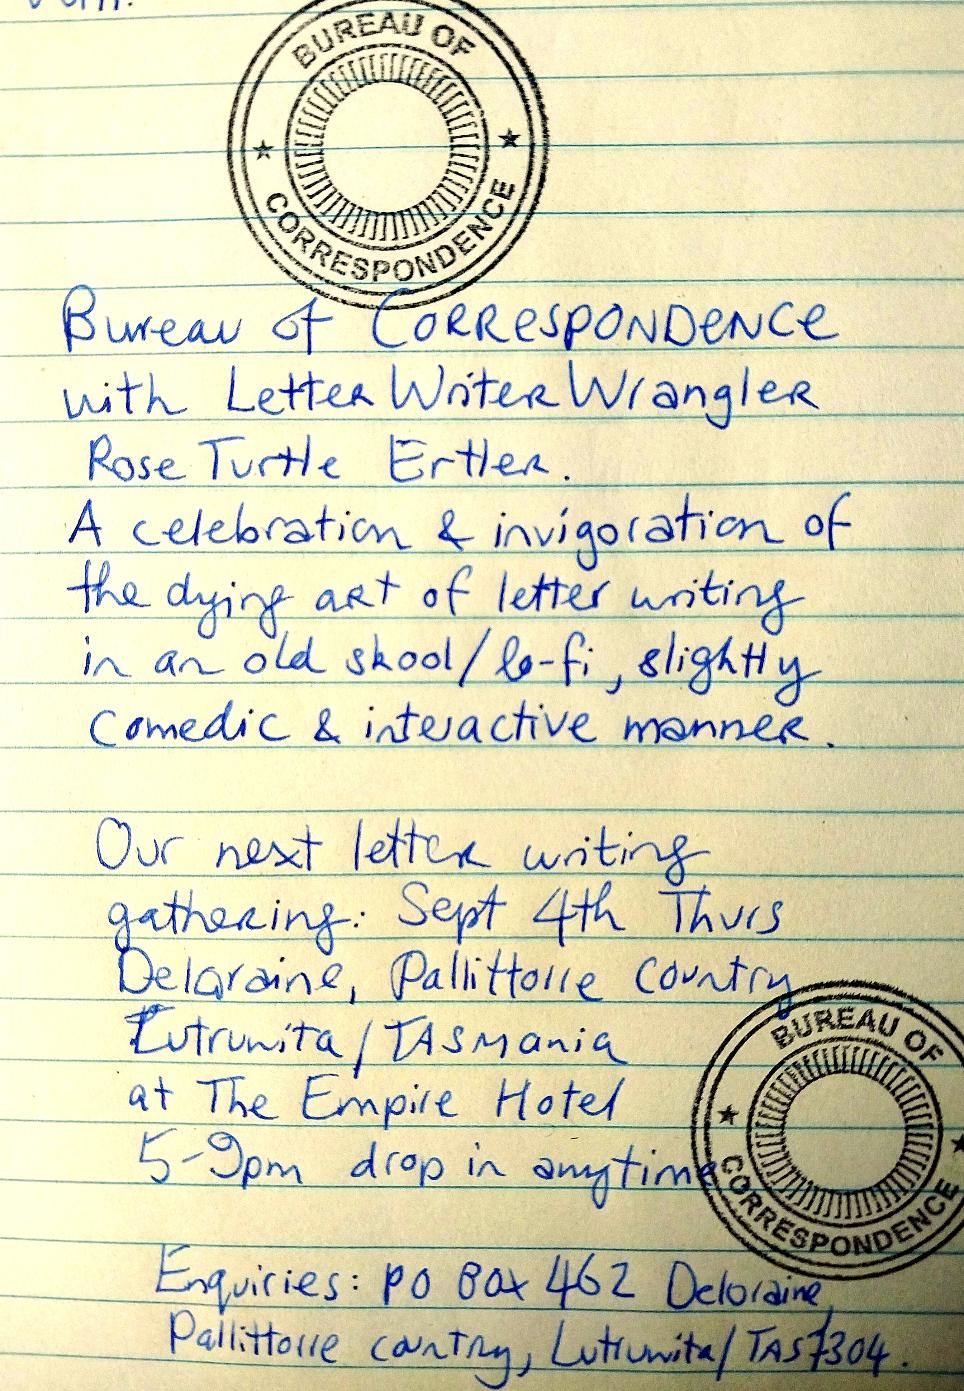 BUREAU OF
CORRESPONDENCE
Bureau of CORRESPONDENCE
with Letter Writer Wrangler
Rose Turtle Ertler.
A celebration & invigoration of
the dying art of letter writing
in an old skool/lo-fi, slightly
comedic & interactive manner.
Our next letter writing
gathering: Sept 4th Thurs
Deloraine, Pallittorre Country
Lutruwita/TASMania
at The Empire Hotel
5-9pm drop in anytime
BUREAU OF
CORRESPONDENCE
Enquiries: PO BOX 462 Deloraine,
Pallittorre country, Lutruwita/TAS 7304.